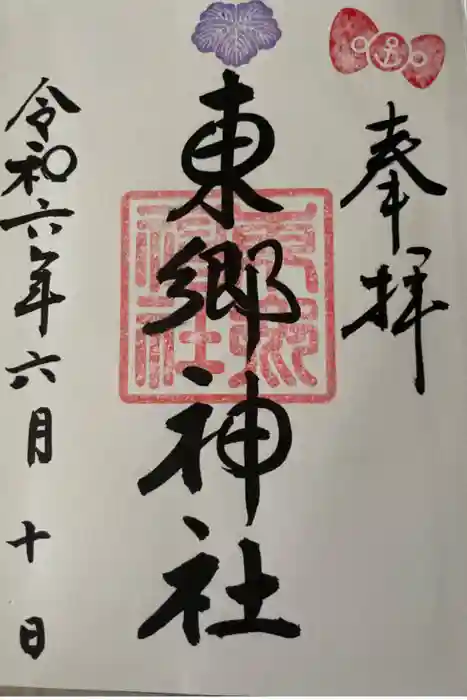 奉拝
東郷神社
東郷神社
令和六年六月十日